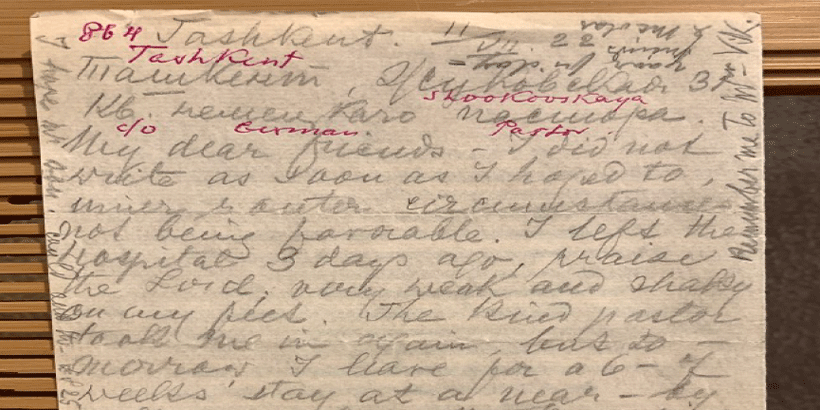 864 Tashkent. 11/VII. 22
Tashkent
Ташкент, Жуковская 3
Shookovskaya
Кв. немецкаго пастора.
c/o German Pastor
My dear friends – I did not
write as soon as I hoped to,
inner & outer circumstances
not being favorable. I left the
hospital 3 days ago, praise
the Lord, very weak and shaky
on my feet. The kind pastor
took me in again, but to-
morrow I leave for a 6–7
weeks' stay at a near-by
Remember me to Mr